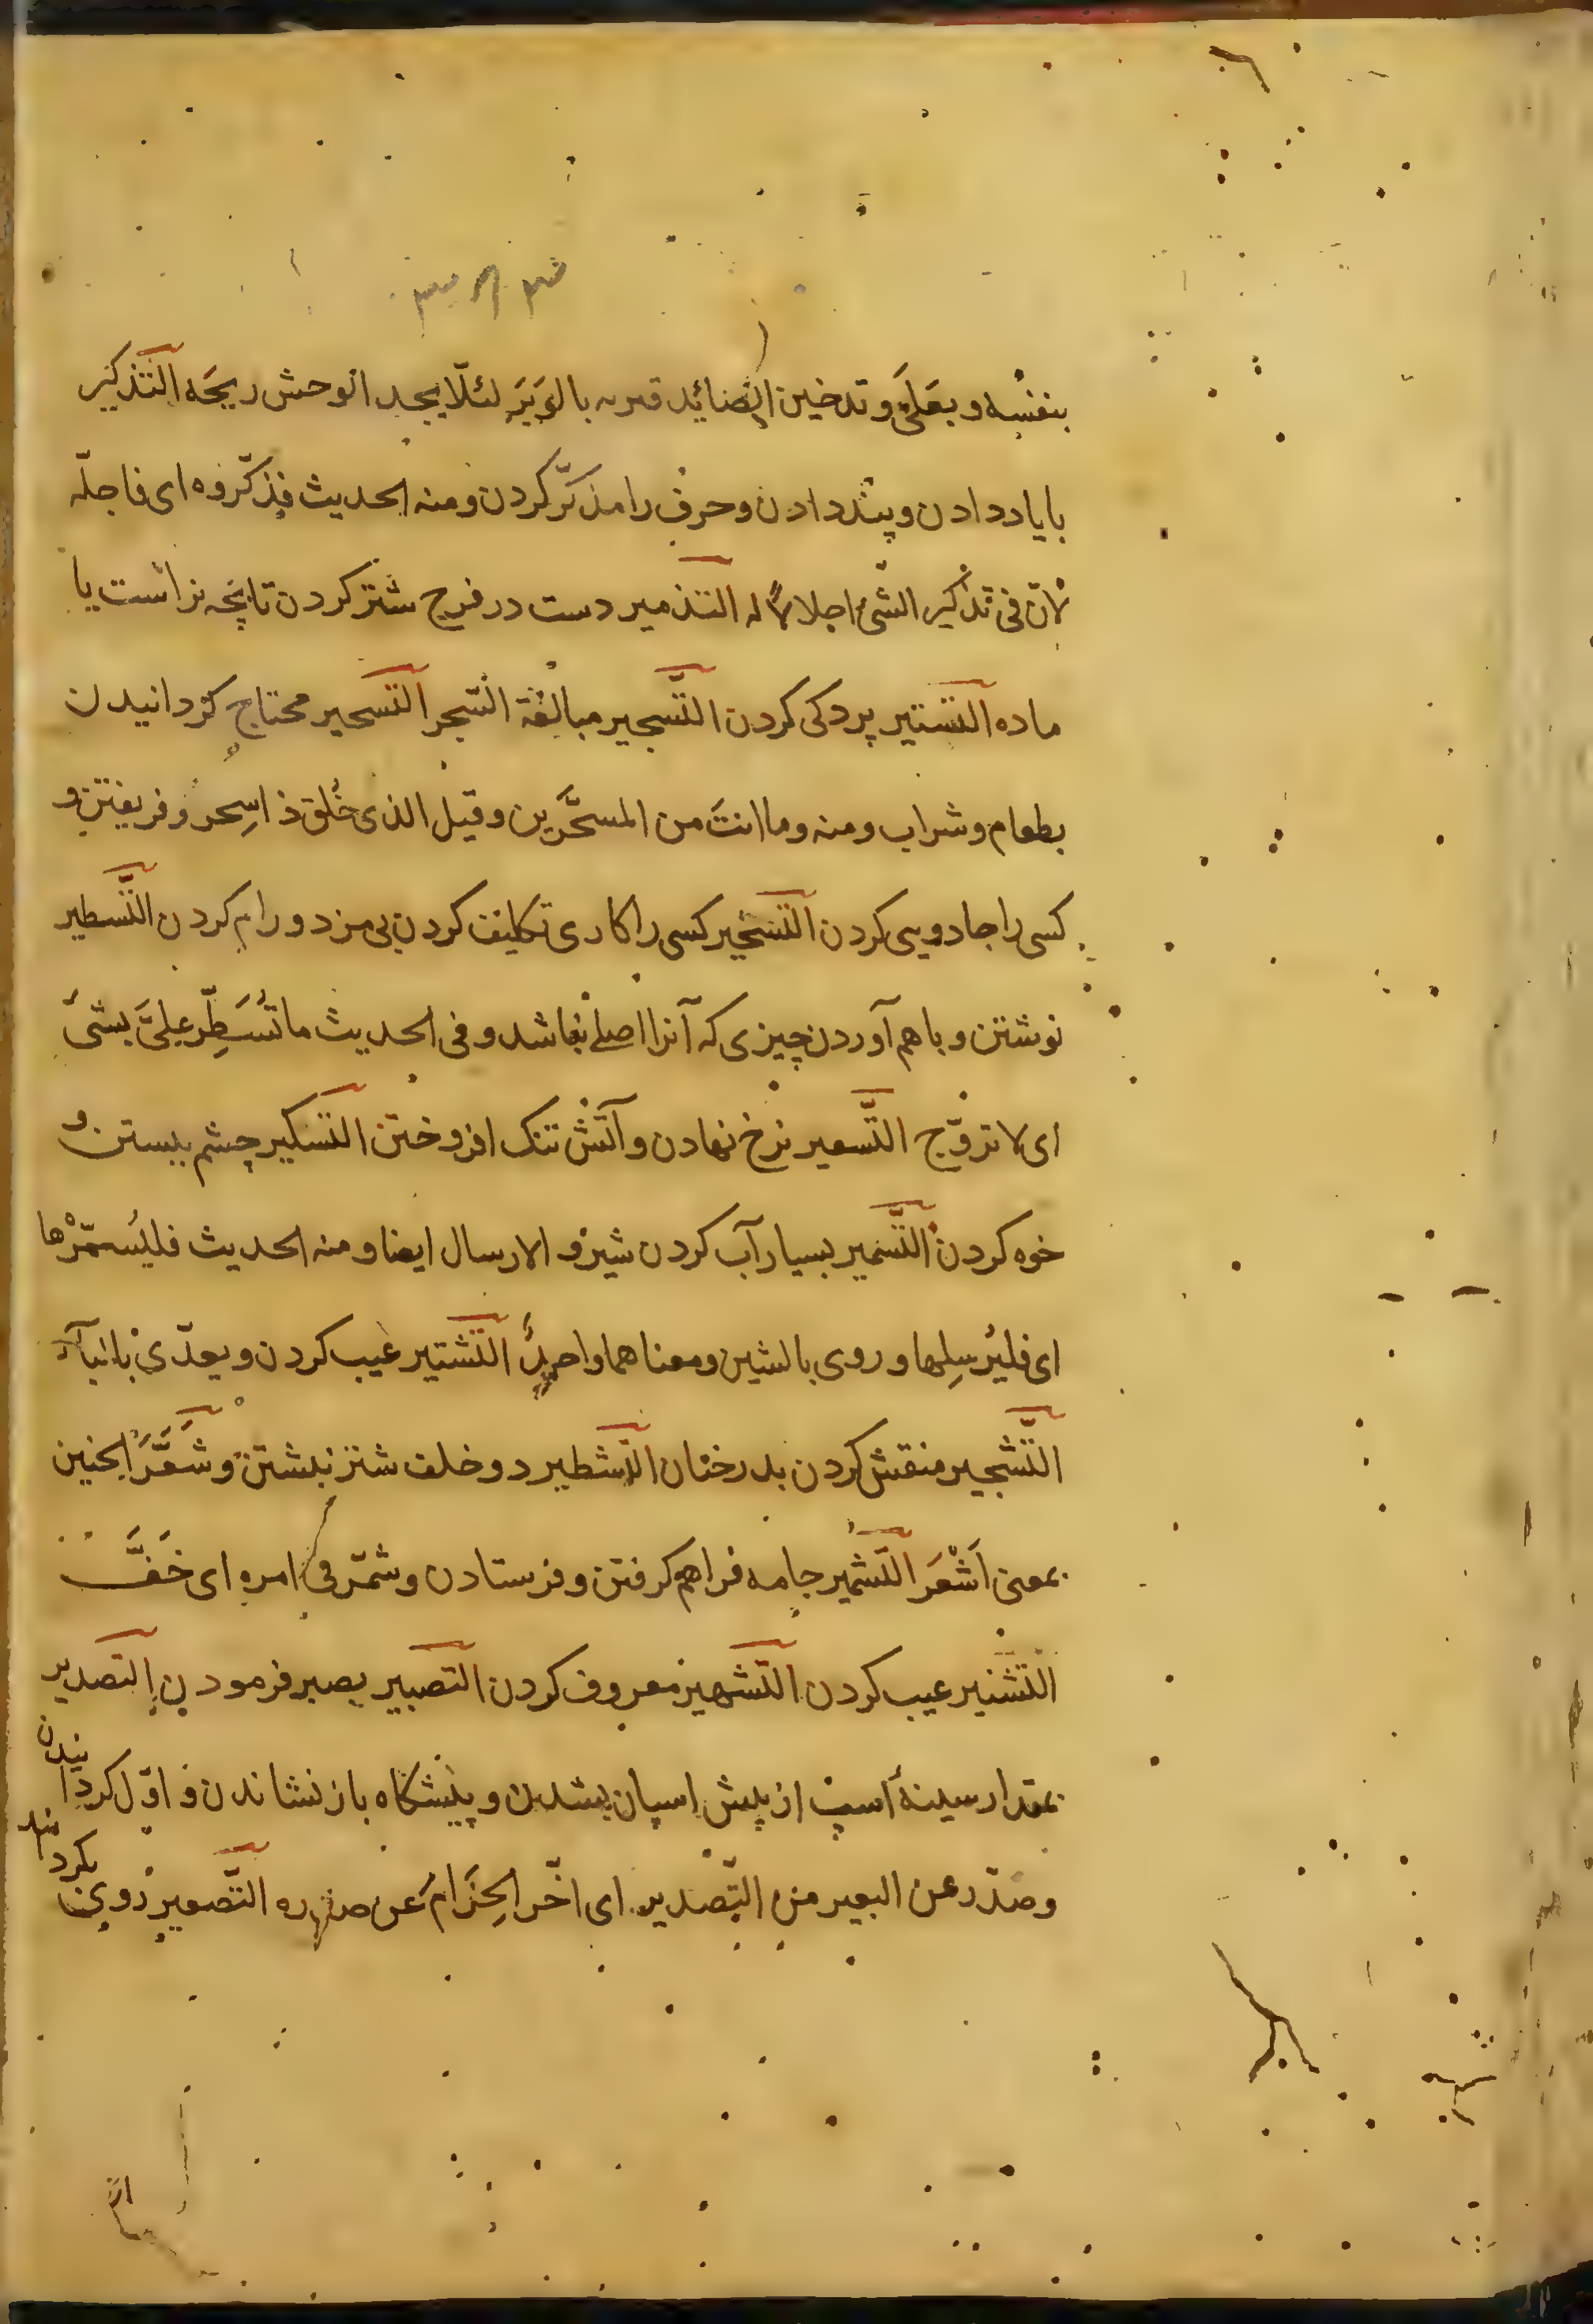 بنفسه وبعلی وتدخین الصائد قتره بالوَبَر لئلّا یجد الوحش ریحَه التذکیر
بایاد دادن و پند دادن و حرف را مذکّر کردن ومنه الحدیث فذکّروه ای فاجلّه
لانّ فی تذکیر الشیٔ اجلالًا له التذمیر دست در فرج شتر کردن تا بچه نراست یا
ماده التستیر پردکی کردن التَّسجیر مبالغة السّجر التسحیر محتاج کردانیدن
بطعام وشراب ومنه وما انتَ من المسحَّرین وقیل الذی خُلق ذا سِحر وفریفتن و
کسی را جادویی کردن التسخیر کسی را کاری تکلیف کردن بی مزد و رام کردن التَّسطیر
نوشتن و با هم آوردن چیزی که آنرا اصلی نباشد وفی الحدیث ما تُسَطِّر علیَّ بشیٔ
ای لا تروّج التَّسعیر نرخ نهادن و آتش تنک افروختن التسکیر چشم ببستن و
خوه کردن التَّسمیر بسیار آب کردن شیر و الارسال ایضا ومنه الحدیث فلیُسمّرْها
ای فلیُرسِلها وروی بالشین ومعناهما واحدٌ التَّشتیر عیب کردن ویعدّی بالبآء
التَّشجیر منقش کردن بدرختان التشطیر دو خلف شتر ببشتن وشَعَّرَ الجنین
بمعنی اَشْعَرَ التَشمیر جامه فراهم کرفتن و فرستادن وشمّر فی امره ای خَفَّ
التَشنیر عیب کردن التشهیر معروف کردن التصبیر بصبر فرمودن التصدیر
بمقدار سینهٔ اسب از پیش اسپان بشدن و پیشکاه باز نشاندن و اوّل کردانیدن
وصَدّر عن البعیر من التَّصدیر ای اخّر الحِزَامَ عن صدره التَّصعیر روی بکردانیدن